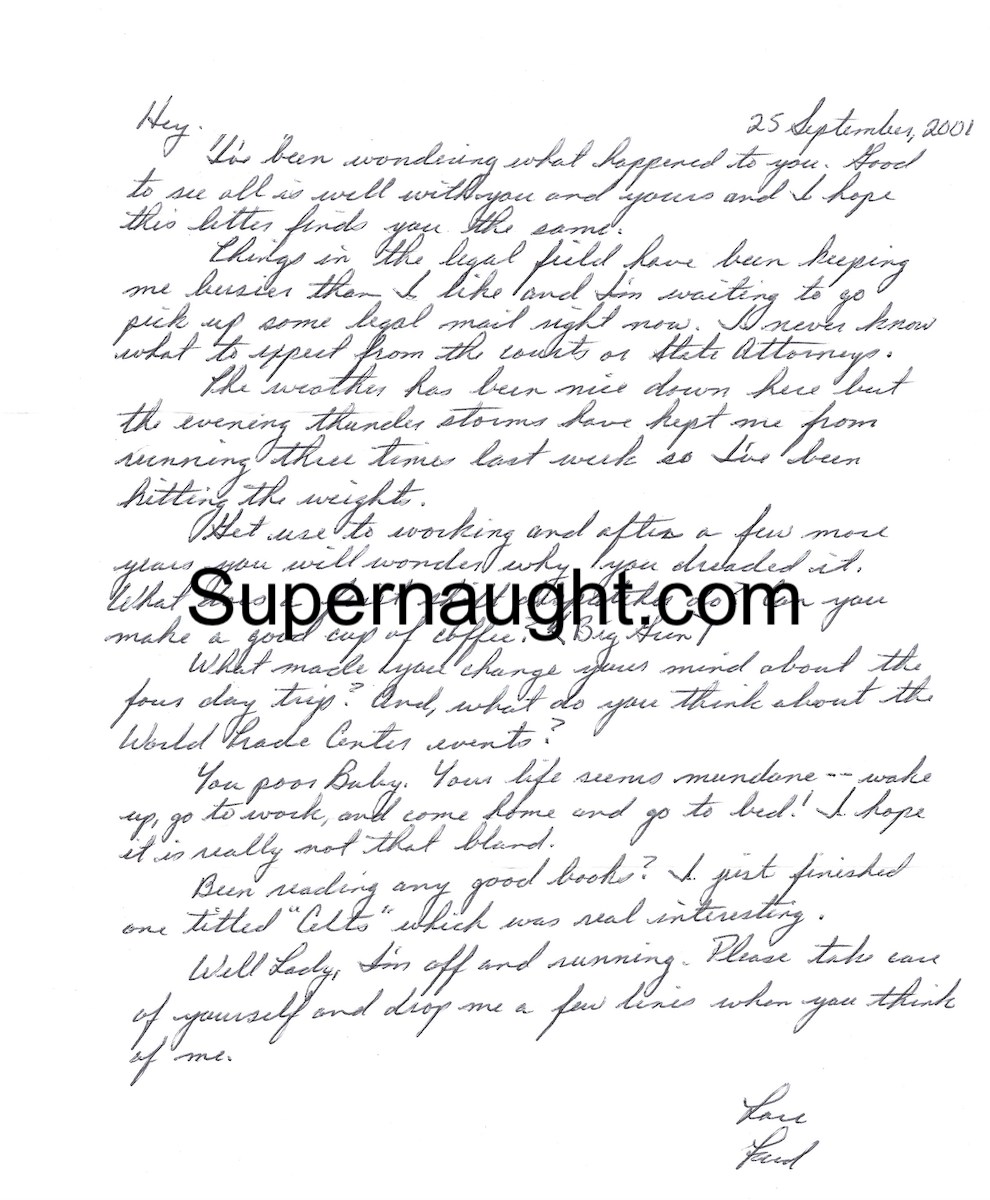 Hey.
25 September, 2001
I've been wondering what happened to you. Good
to see all is well with you and yours and I hope
this letter finds you the same.
Things in the legal field have been keeping
me busier than I like and I'm waiting to go
pick up some legal mail right now. I never know
what to expect from the courts or State Attorneys.
The weather has been nice down here but
the evening thunder storms have kept me from
running three times last week so I've been
hitting the weights.
Get use to working and after a few more
years you will wonder why you dreaded it.
What does a do? Can you
Supernaught.com
make a good cup of coffee? Big Grin!
What made you change your mind about the
four day trip? And, what do you think about the
World Trade Center events?
You poor Baby. Your life seems mundane -- wake
up, go to work, and come home and go to bed! I hope
it is really not that bland.
Been reading any good books? I just finished
one titled "Celts" which was real interesting.
Well Lady, I'm off and running. Please take care
of yourself and drop me a few lines when you think
of me.
Love